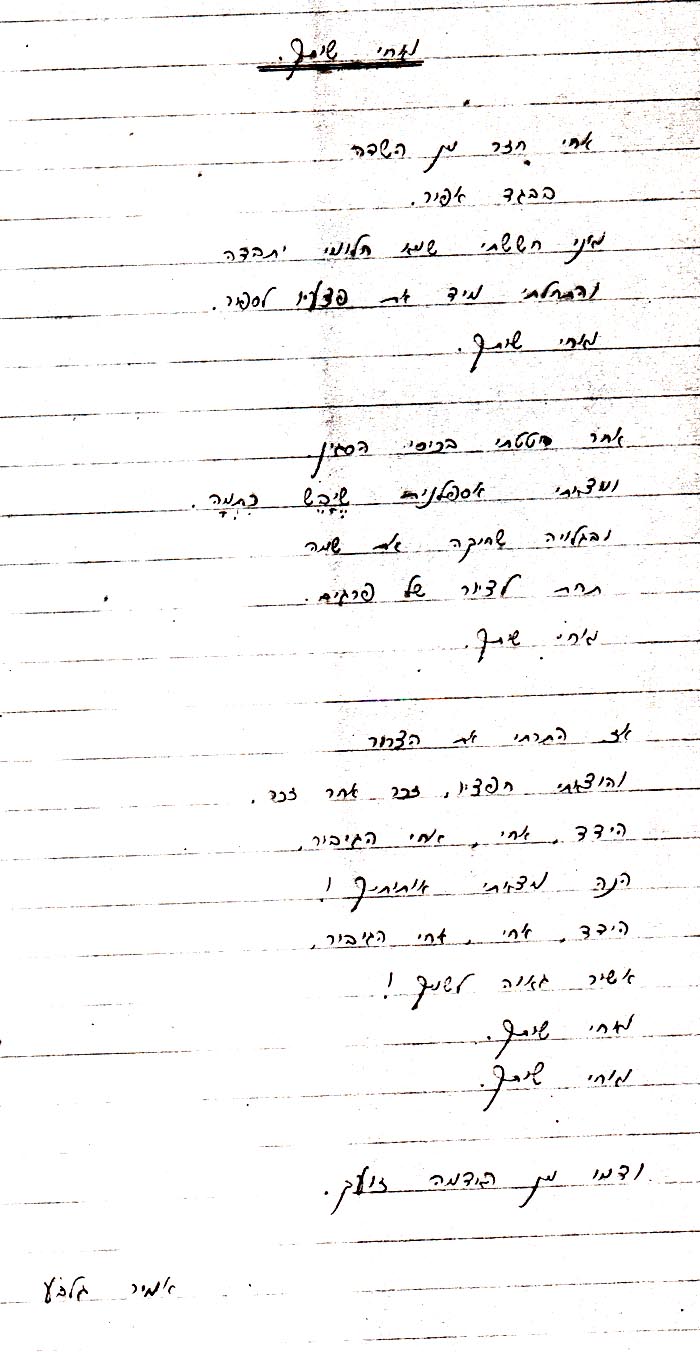 ואחי שותק.
אחי חזר מן השדה
בבגד אפור.
ואני חששתי שמא חלומי יתבדה
והתחלתי מיד את פצעיו לספור.
ואחי שותק.
אחר חטטתי בכיסי הסגין
ומצאתי אספלנית שֶׁיָּבֵשׁ כִּתְמָהּ.
ובגלויה שחוקה את שמה
תחת לציור של פרגים.
ואחי שותק.
אז התרתי את הצרור
והוצאתי חפציו, זכר אחר זכר.
הידד, אחי, אחי הגיבור,
הנה מצאתי אותותיך!
הידד, אחי, אחי הגיבור,
אשיר גאוה לשמך!
ואחי שותק.
ואחי שותק.
ודמו מן האדמה זועק.
אמיר גלבע